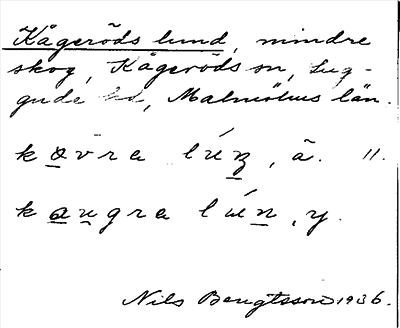 Kågeröds lund, mindre
skog, Kågeröds sn, Lug-
gude hd, Malmöhus län.
køvra lúnʒ, ā. 11.
kaugra lúen, y.
Nils Bengtsson 1936.